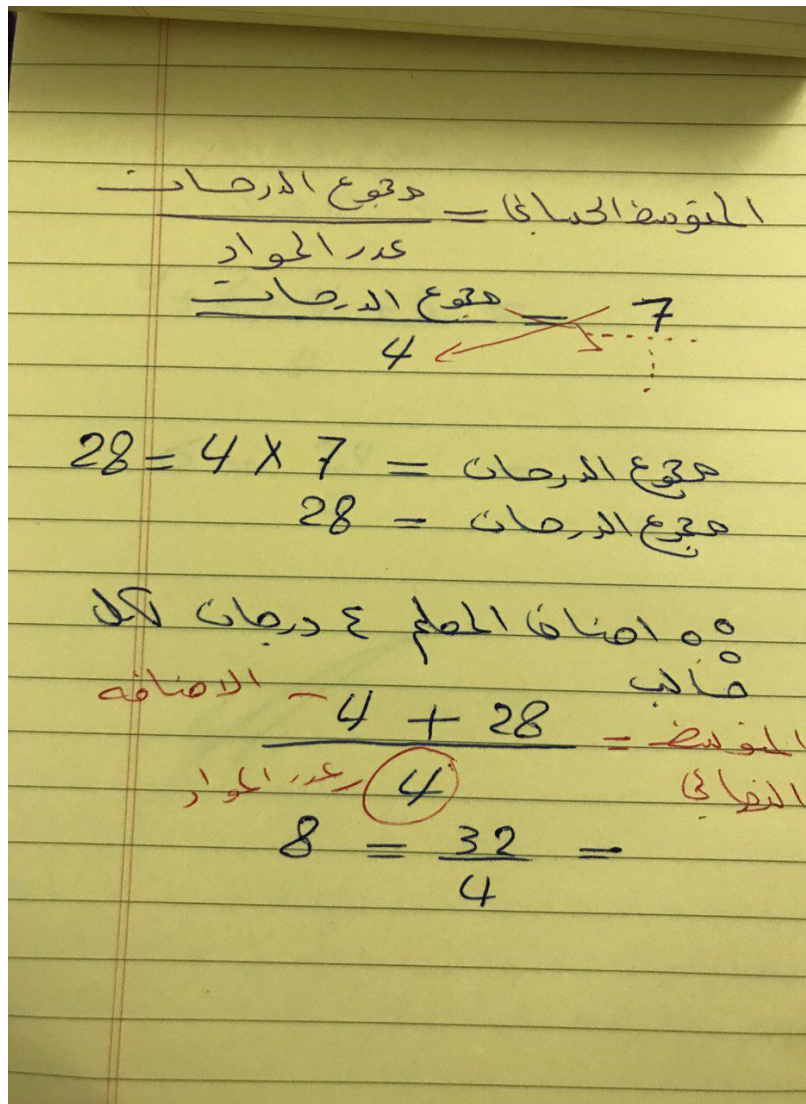 المتوسط الحسابي = مجموع الدرجات
عدد المواد
7 = مجموع الدرجات
4
مجموع الدرجات = 7 × 4 = 28
مجموع الدرجات = 28
∴ اضاف المعلم ٤ درجات لكل
طالب
المتوسط = 28 + 4 – الاضافه
النهائي 4 عدد المواد
= 32 = 8
4